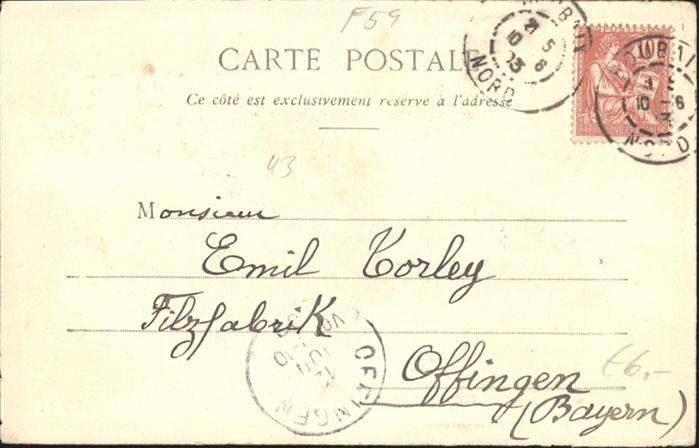 F59
CARTE POSTALE
Ce côté est exclusivement réservé à l'adresse
43
Monsieur
Emil Korley
Filzfabrik
Offingen
(Bayern)
€6.-
10
NORD
NORD
OFFINGEN